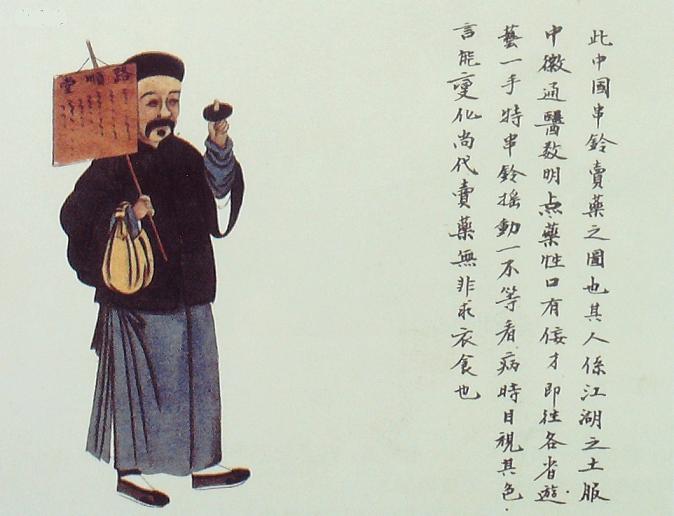 路順堂
此中國串鈴賣藥之圖也其人係江湖之土服
中徽通醫数明点藥性口有佞才即往各省遊.
藝一手特串鈴搖動一不等看病時目視其色.
言能變化尚代賣藥無非求衣食也